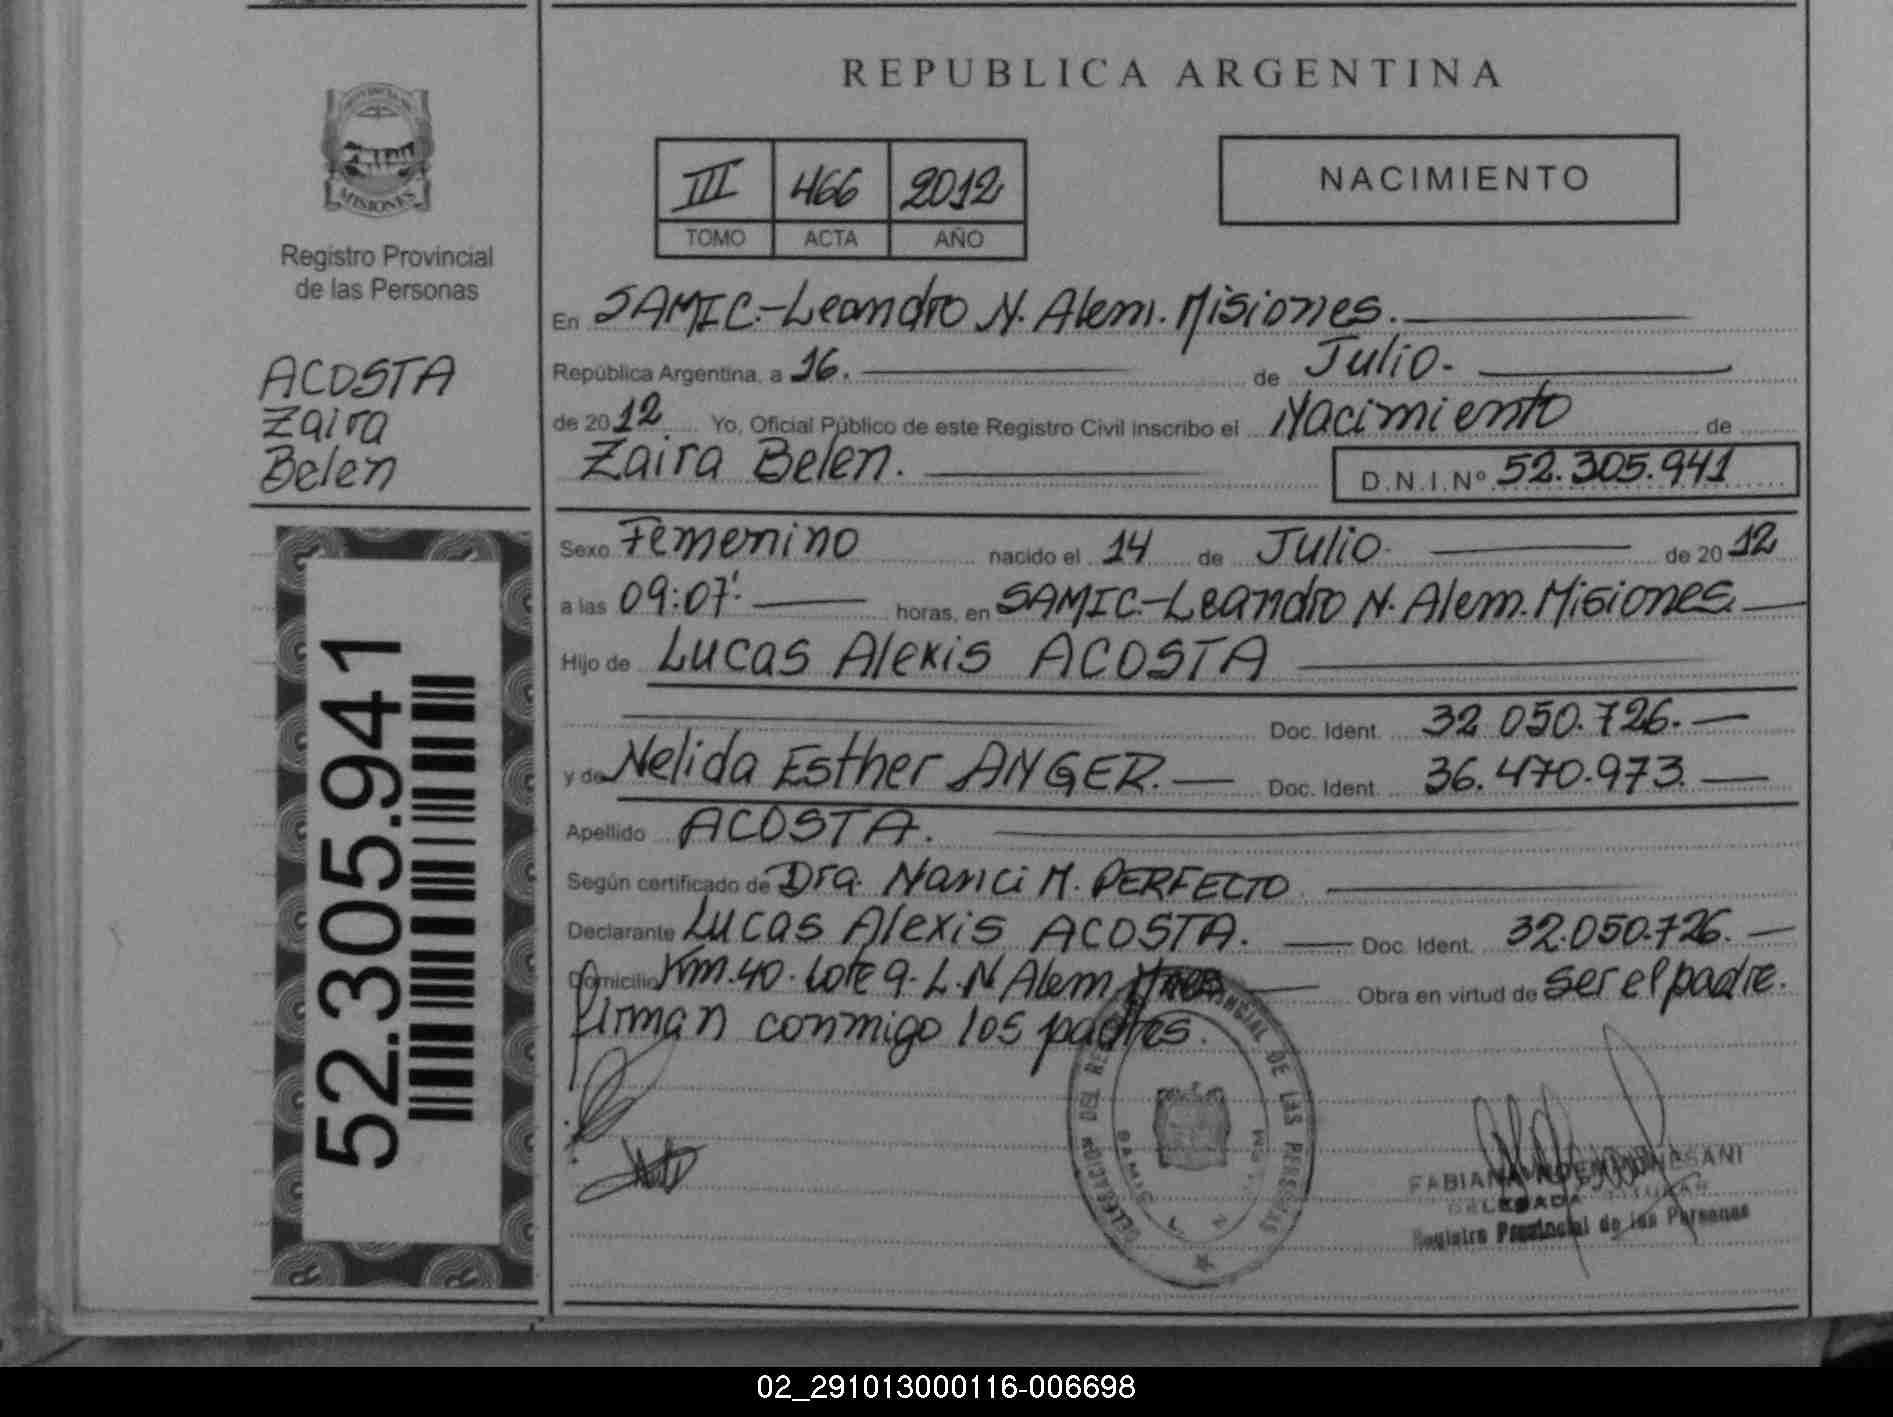 REPUBLICA ARGENTINA
III 466 2012
TOMO ACTA AÑO
NACIMIENTO
MISIONES
Registro Provincial
de las Personas
ACOSTA
Zaira
Belen
52.305.941
En SAMIC.-Leandro N. Alem. Misiones.
República Argentina, a 16. de Julio.
de 2012 Yo, Oficial Público de este Registro Civil inscribo el Nacimiento de
Zaira Belen. D.N.I.Nº 52.305.941
Sexo Femenino nacido el 14 de Julio. de 2012
a las 09:07'. horas, en SAMIC.-Leandro N. Alem. Misiones.
Hijo de Lucas Alexis ACOSTA
Doc. Ident. 32.050.726.
y de Nelida Esther ANGER. Doc. Ident. 36.470.973.
Apellido ACOSTA.
Según certificado de Dra. Nanci M. PERFECTO
Declarante Lucas Alexis ACOSTA. Doc. Ident. 32.050.726.
Domicilio Km.40. Lote 9. L.N Alem Mnes Obra en virtud de ser el padre.
firman conmigo los padres.
DELEGACION DEL PROVINCIAL DE LAS PERSONAS
FABIANA
DELEGADA TITULAR
Registro Provincial de las Personas
02_291013000116-006698